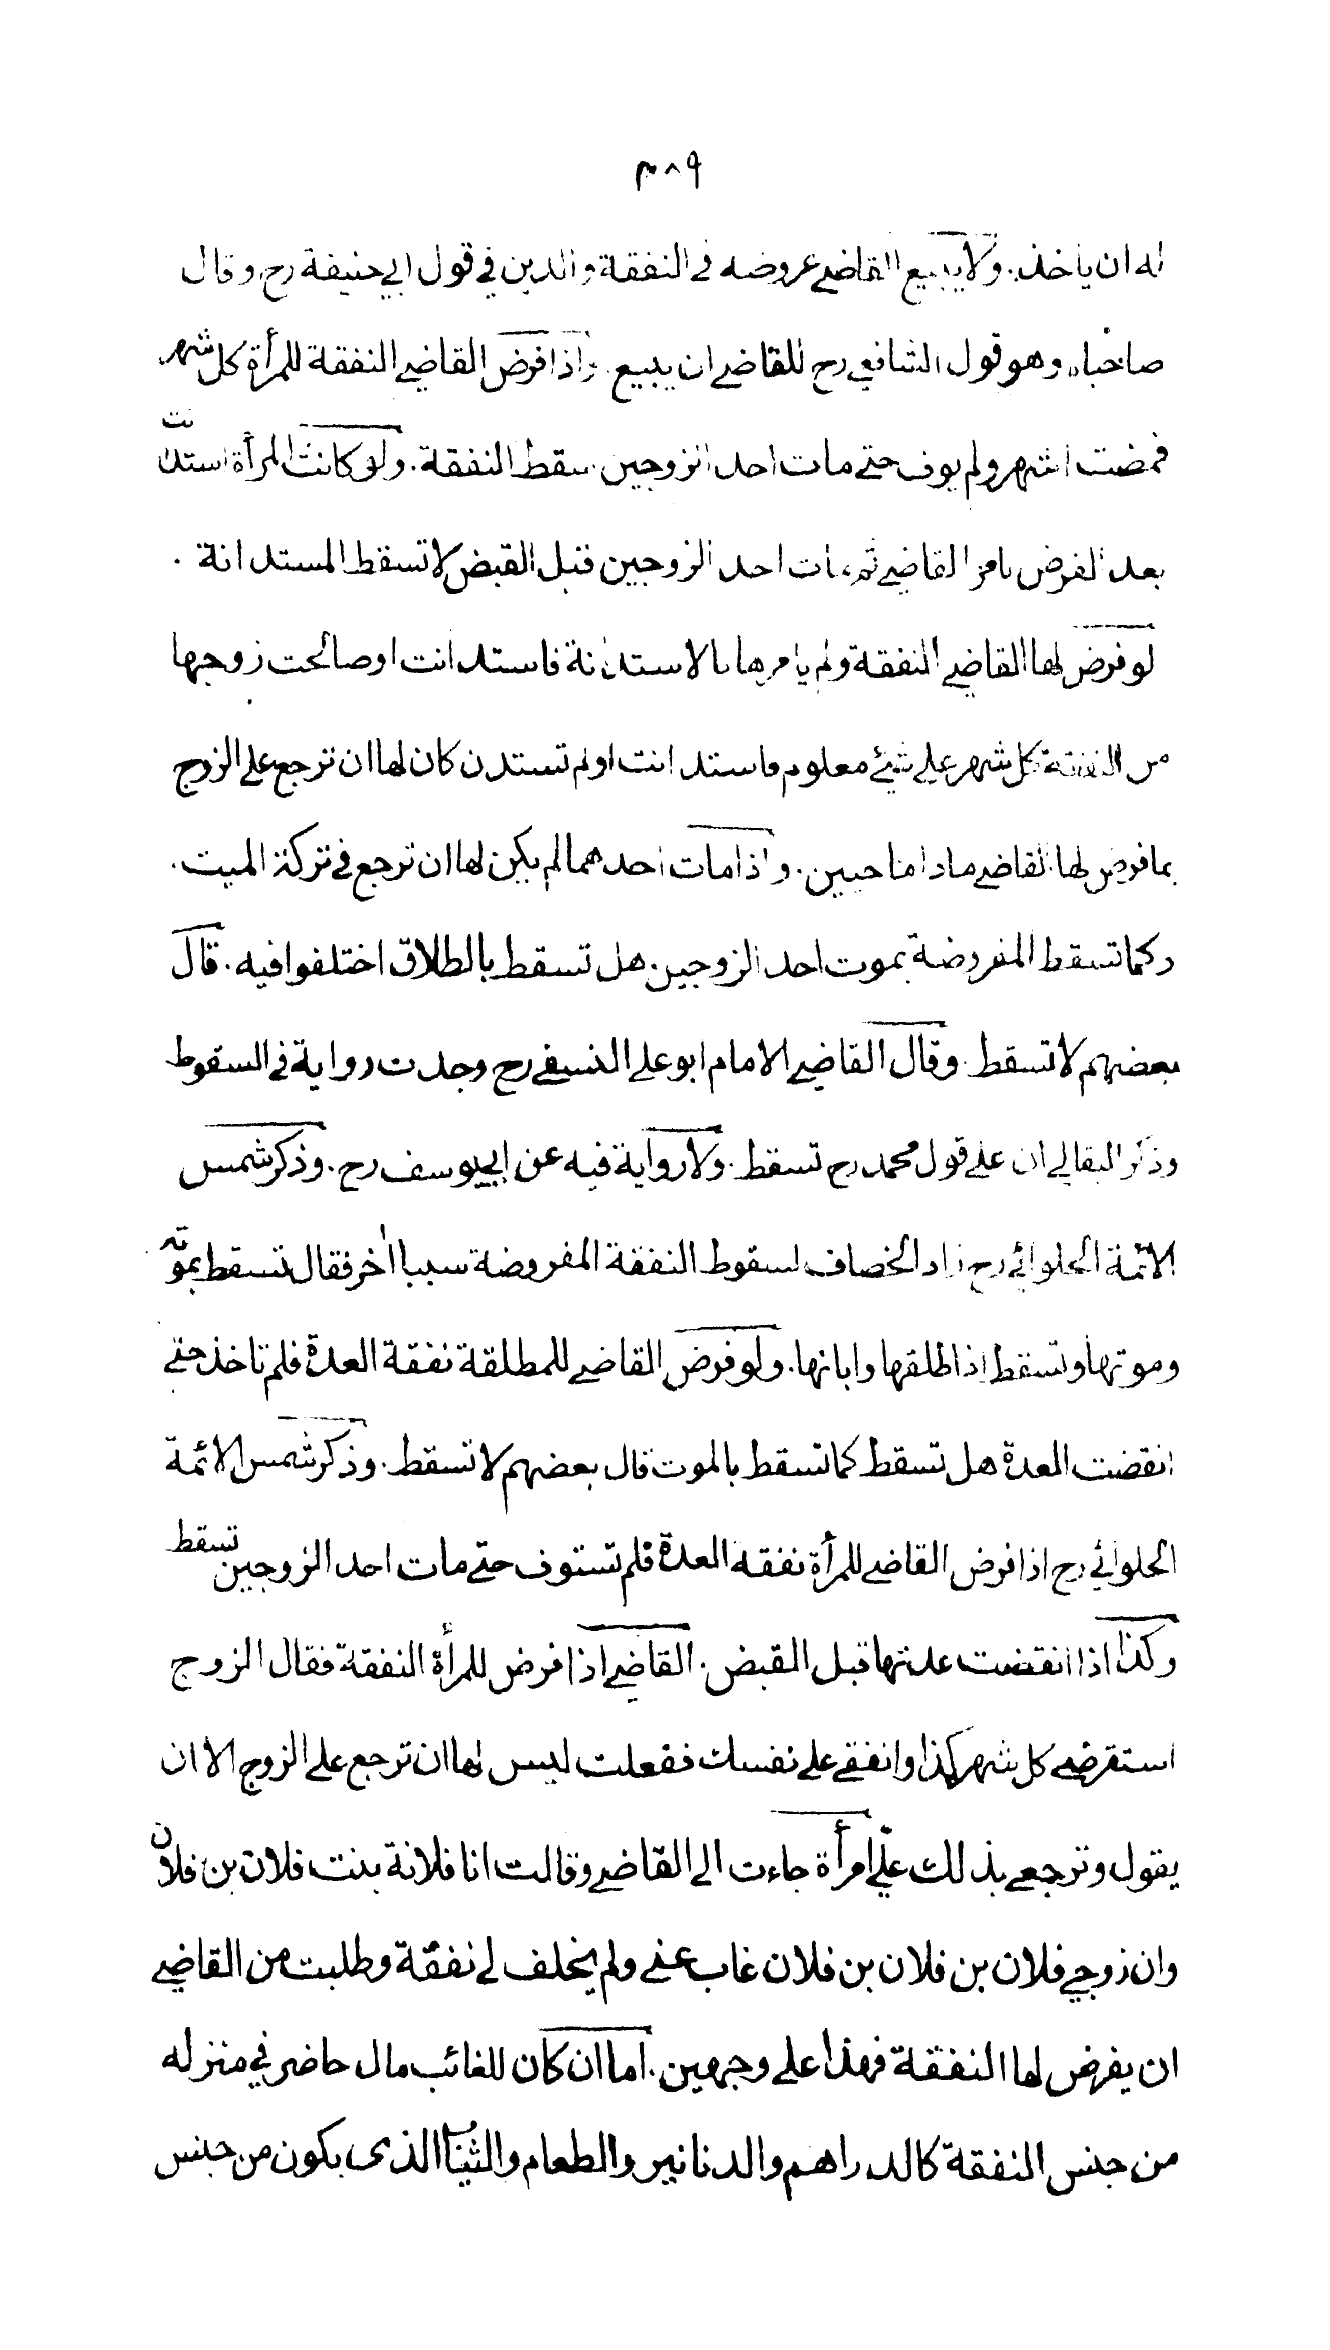 ٣٨٩
له ان ياخذ. ولا يبيع القاضي عروضه في النفقة والدين في قول ابي حنيفة رح وقال
صاحباه وهو قول الشافعي رح للقاضي ان يبيع. واذا فرض القاضي النفقة للمرأة كل شهر
فمضت اشهر ولم يوف حتى مات احد الزوجين سقط النفقة. ولو كانت المرأة استدانت
بعد الفرض بامر القاضي ثم مات احد الزوجين قبل القبض لا تسقط المستدانة.
لو فرض لها القاضي النفقة ولم يامرها بالاستدانة فاستدانت او صالحت زوجها
من النفقة كل شهر على شيئ معلوم فاستدانت او لم تستدن كان لها ان ترجع على الزوج
بما فرض لها القاضي ما داما حيين. واذا مات احدهما لم يكن لها ان ترجع في تركة الميت.
وكما تسقط المفروضة بموت احد الزوجين. هل تسقط بالطلاق اختلفوا فيه. قال
بعضهم لا تسقط. وقال القاضي الامام ابو علي النسفي رح وجدت رواية في السقوط
وذكر البقالي ان على قول محمد رح تسقط. ولا رواية فيه عن ابي يوسف رح. وذكر شمس
الائمة الحلوائي رح زاد الخصاف لسقوط النفقة المفروضة سببا اٰخر فقال تسقط بموته
وموتها وتسقط اذا طلقها وابانها. ولو فرض القاضي للمطلقة نفقة العدة فلم تاخذ حتى
انقضت العدة هل تسقط كما تسقط بالموت قال بعضهم لا تسقط. وذكر شمس الائمة
الحلوائي رح اذا فرض القاضي للمرأة نفقه العدة فلم تستوف حتى مات احد الزوجين تسقط
وكذا اذا انقضت عدتها قبل القبض. القاضي اذا فرض للمرأة النفقة فقال الزوج
استقرضي كل شهر كذا وانفقي على نفسك ففعلت ليس لها ان ترجع على الزوج الا ان
يقول وترجعي بذلك عليّ امرأة جاءت الى القاضي وقالت انا فلانة بنت فلان بن فلان
وان زوجي فلان بن فلان بن فلان غاب عني ولم يخلف لي نفقة وطلبت من القاضي
ان يفرض لها النفقة فهذا على وجهين. اما ان كان للغائب مال حاضر في منزله
من جنس النفقة كالدراهم والدنانير والطعام والثياب الذى يكون من جنس